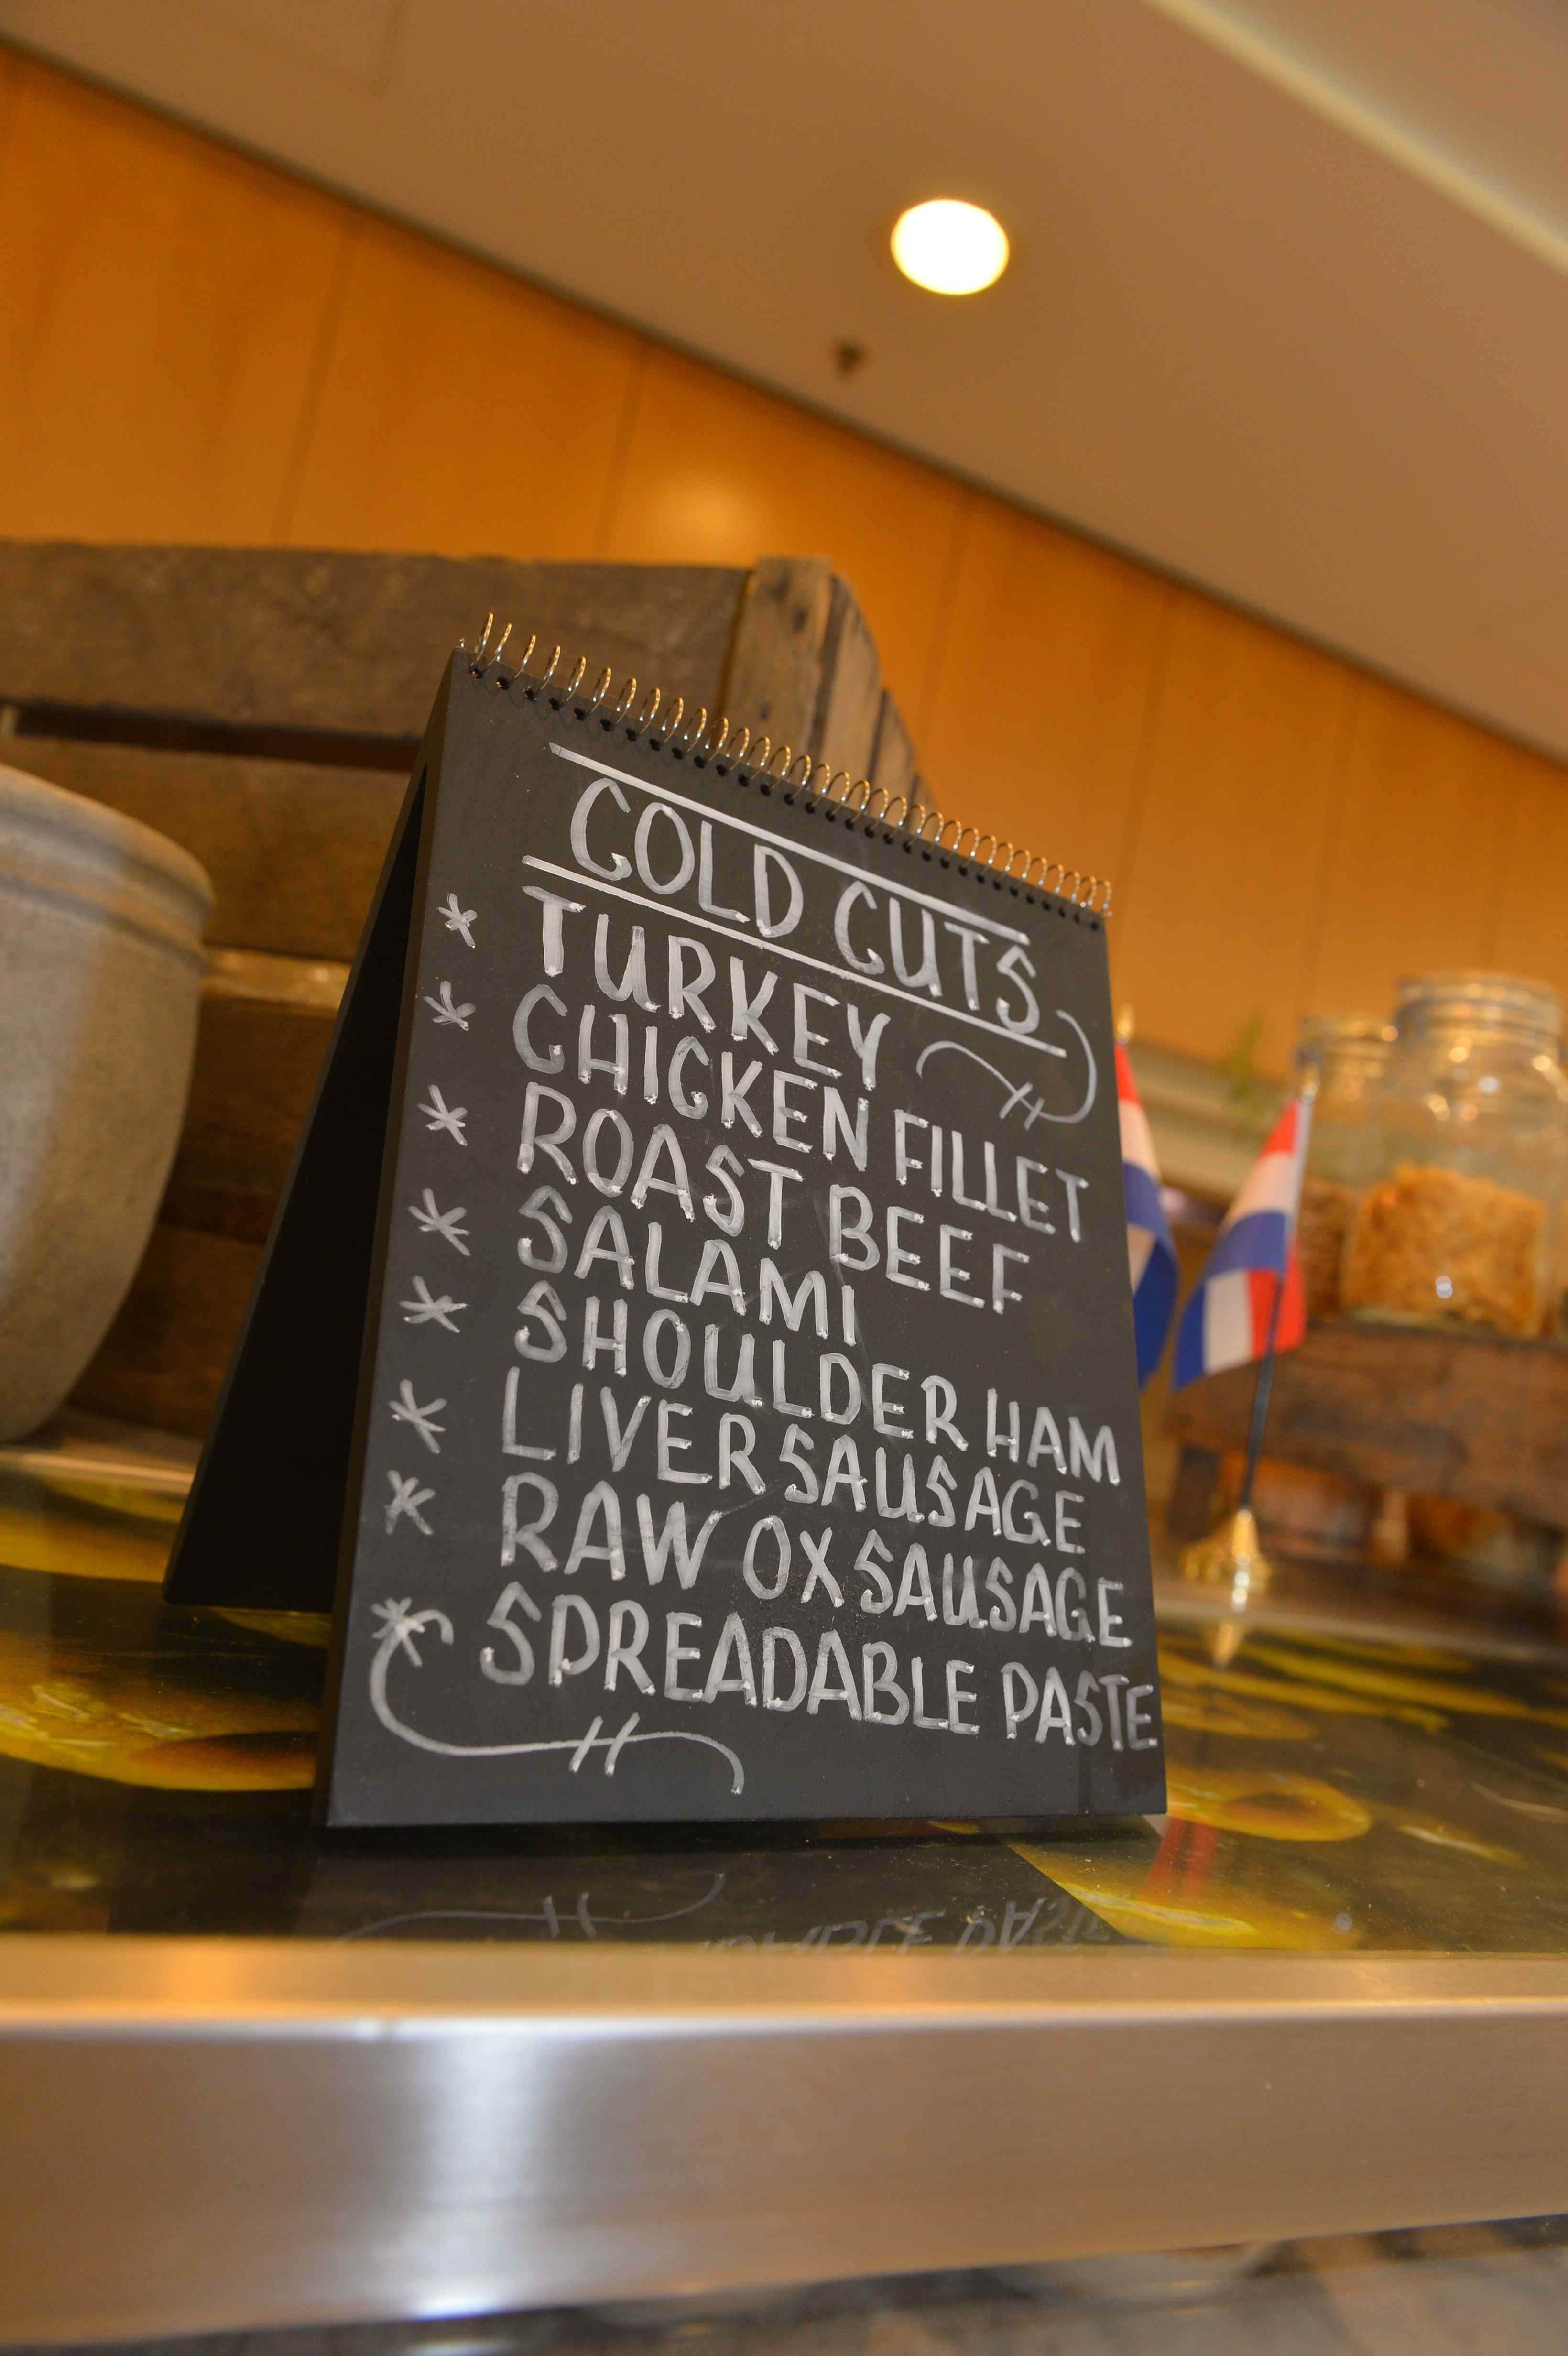 COLD CUTS
* TURKEY
* CHICKEN FILLET
* ROAST BEEF
* SALAMI
* SHOULDER HAM
* LIVERSAUSAGE
* RAW OX SAUSAGE
* SPREADABLE PASTE